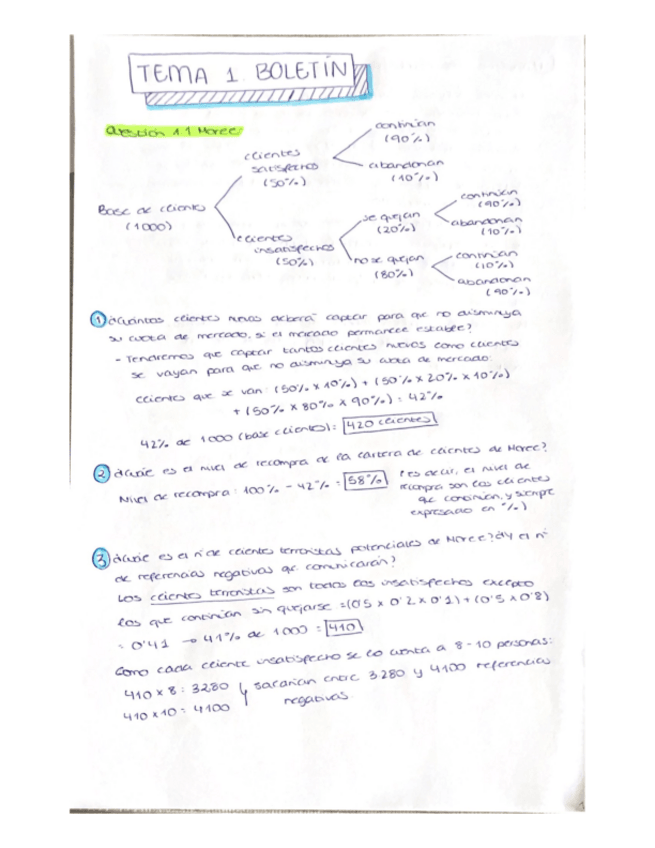 TEMA 1. BOLETÍN
Cuestión 1.1 Morec:
continúan
(90%)
clientes
satisfechos
(50%)
abandonan
(10%)
Base de clientes
(1000)
clientes
insatisfechos
(50%)
se quejan
(20%)
continúan
(90%)
abandonan
(10%)
no se quejan
(80%)
continúan
(10%)
abandonan
(90%)
① ¿Cuántos clientes nuevos deberá captar para que no disminuya
su cuota de mercado, si el mercado permanece estable?
- Tendremos que captar tantos clientes nuevos como clientes
se vayan para que no disminuya su cuota de mercado:
clientes que se van: (50% x 10%) + (50% x 20% x 10%)
+ (50% x 80% x 90%) = 42%
42% de 1000 (base clientes) = 420 clientes
② ¿Cuál es el nivel de recompra de la cartera de clientes de Morec?
Nivel de recompra: 100% - 42% = 58% (es decir, el nivel de
recompra son los clientes
que continúan, y siempre
expresado en %)
③ ¿Cuál es el nº de clientes terroristas potenciales de Morec? ¿Y el nº
de referencias negativas que comunicarán?
Los clientes terroristas son todos los insatisfechos excepto
los que continúan sin quejarse = (0'5 x 0'2 x 0'1) + (0'5 x 0'8)
= 0'41 → 41% de 1000 = 410
Como cada cliente insatisfecho se lo cuenta a 8-10 personas:
410 x 8 = 3280 } sacarían entre 3280 y 4100 referencias
410 x 10 = 4100 negativas.